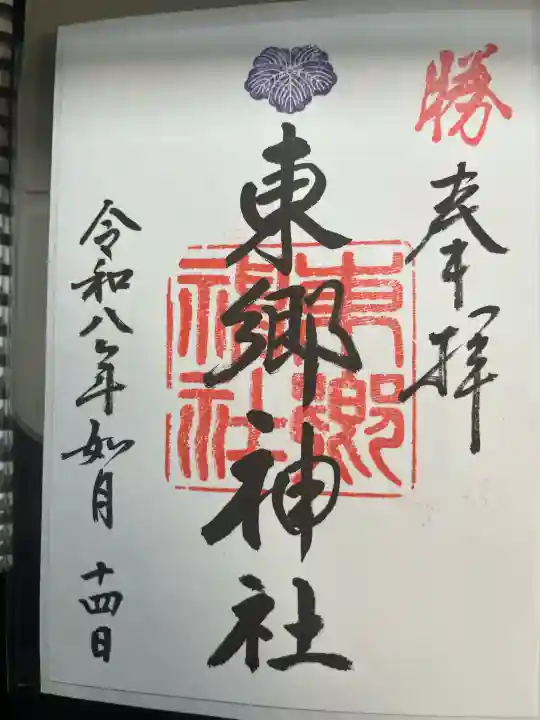 勝
奉拝
東郷神社
東郷神社
令和八年如月 十四日